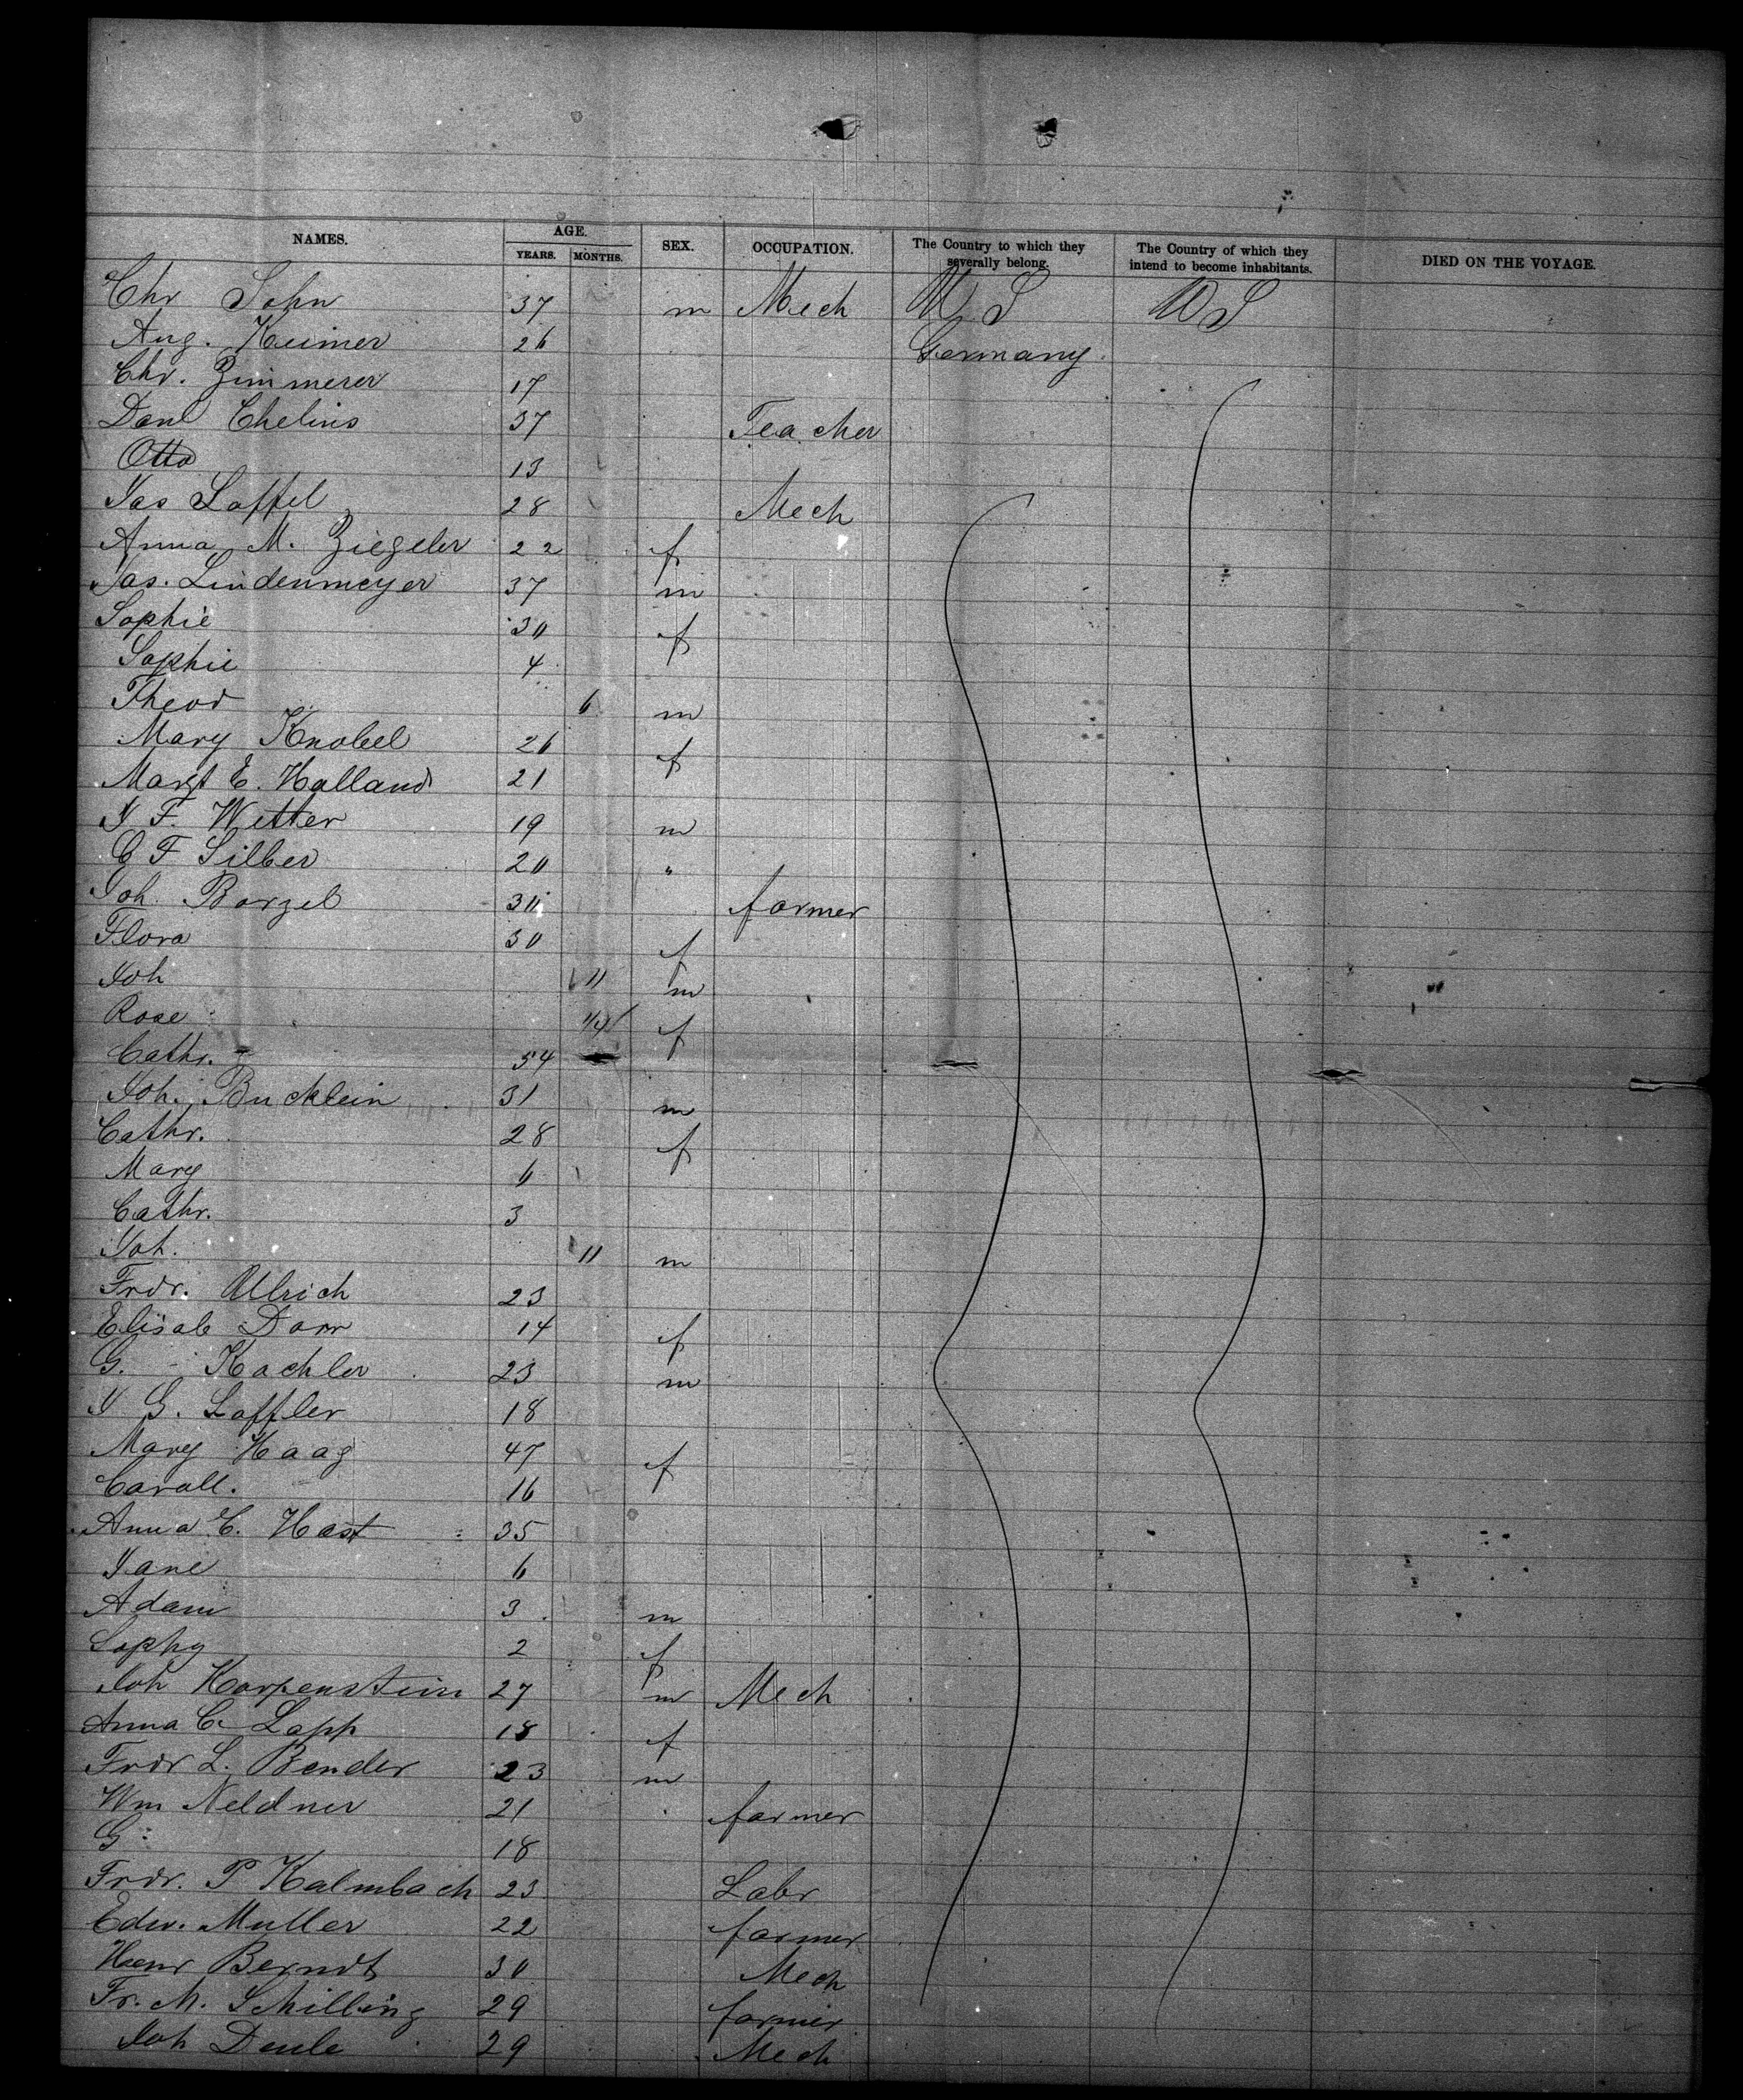 NAMES. AGE. SEX. OCCUPATION. The Country to which they severally belong. The Country of which they intend to become inhabitants. DIED ON THE VOYAGE.
YEARS. MONTHS.
Chr Sohn 37 m Mech U S U S
Aug. Keimer 26 Germany
Chr. Zimmerer 17
Danl Chelius 37 Teacher
Otto 13
Jas Loffel 28 Mech
Anna M. Ziegeler 22 f
Jas. Lindenmeyer 37 m
Sophie 30 f
Sophie 4
Theod 6 m
Mary Knobel 26 f
Margt E. Halland 21
J F. Witter 19 m
G F Silber 20 "
Joh. Barzel 30 farmer
Flora 30 f
Joh 11 m
Rose 1/4 f
Cathr. 54
Joh. Bucklein 31 m
Cathr. 28 f
Mary 6
Cathr. 3
Joh. 11 m
Frdr. Ullrich 23
Elisab Dorr 14 f
G. Kachler 23 m
J G. Loffler 18
Mary Haag 47 f
Caroll. 16
Anna C. Hast 35
Jane 6
Adam 3 m
Sophy 2 f
Joh Karpenstein 27 m Mech
Anna C. Lapp 18 f
Frdr L. Bender 23 m
Wm Neldner 21 farmer
G. 18
Frdr. P Kalmbach 23 Labr
Edw. Muller 22 farmer
Henr Berndt 30 Mech
Fr. M. Schilling 29 farmer
Joh Deule 29 Mech